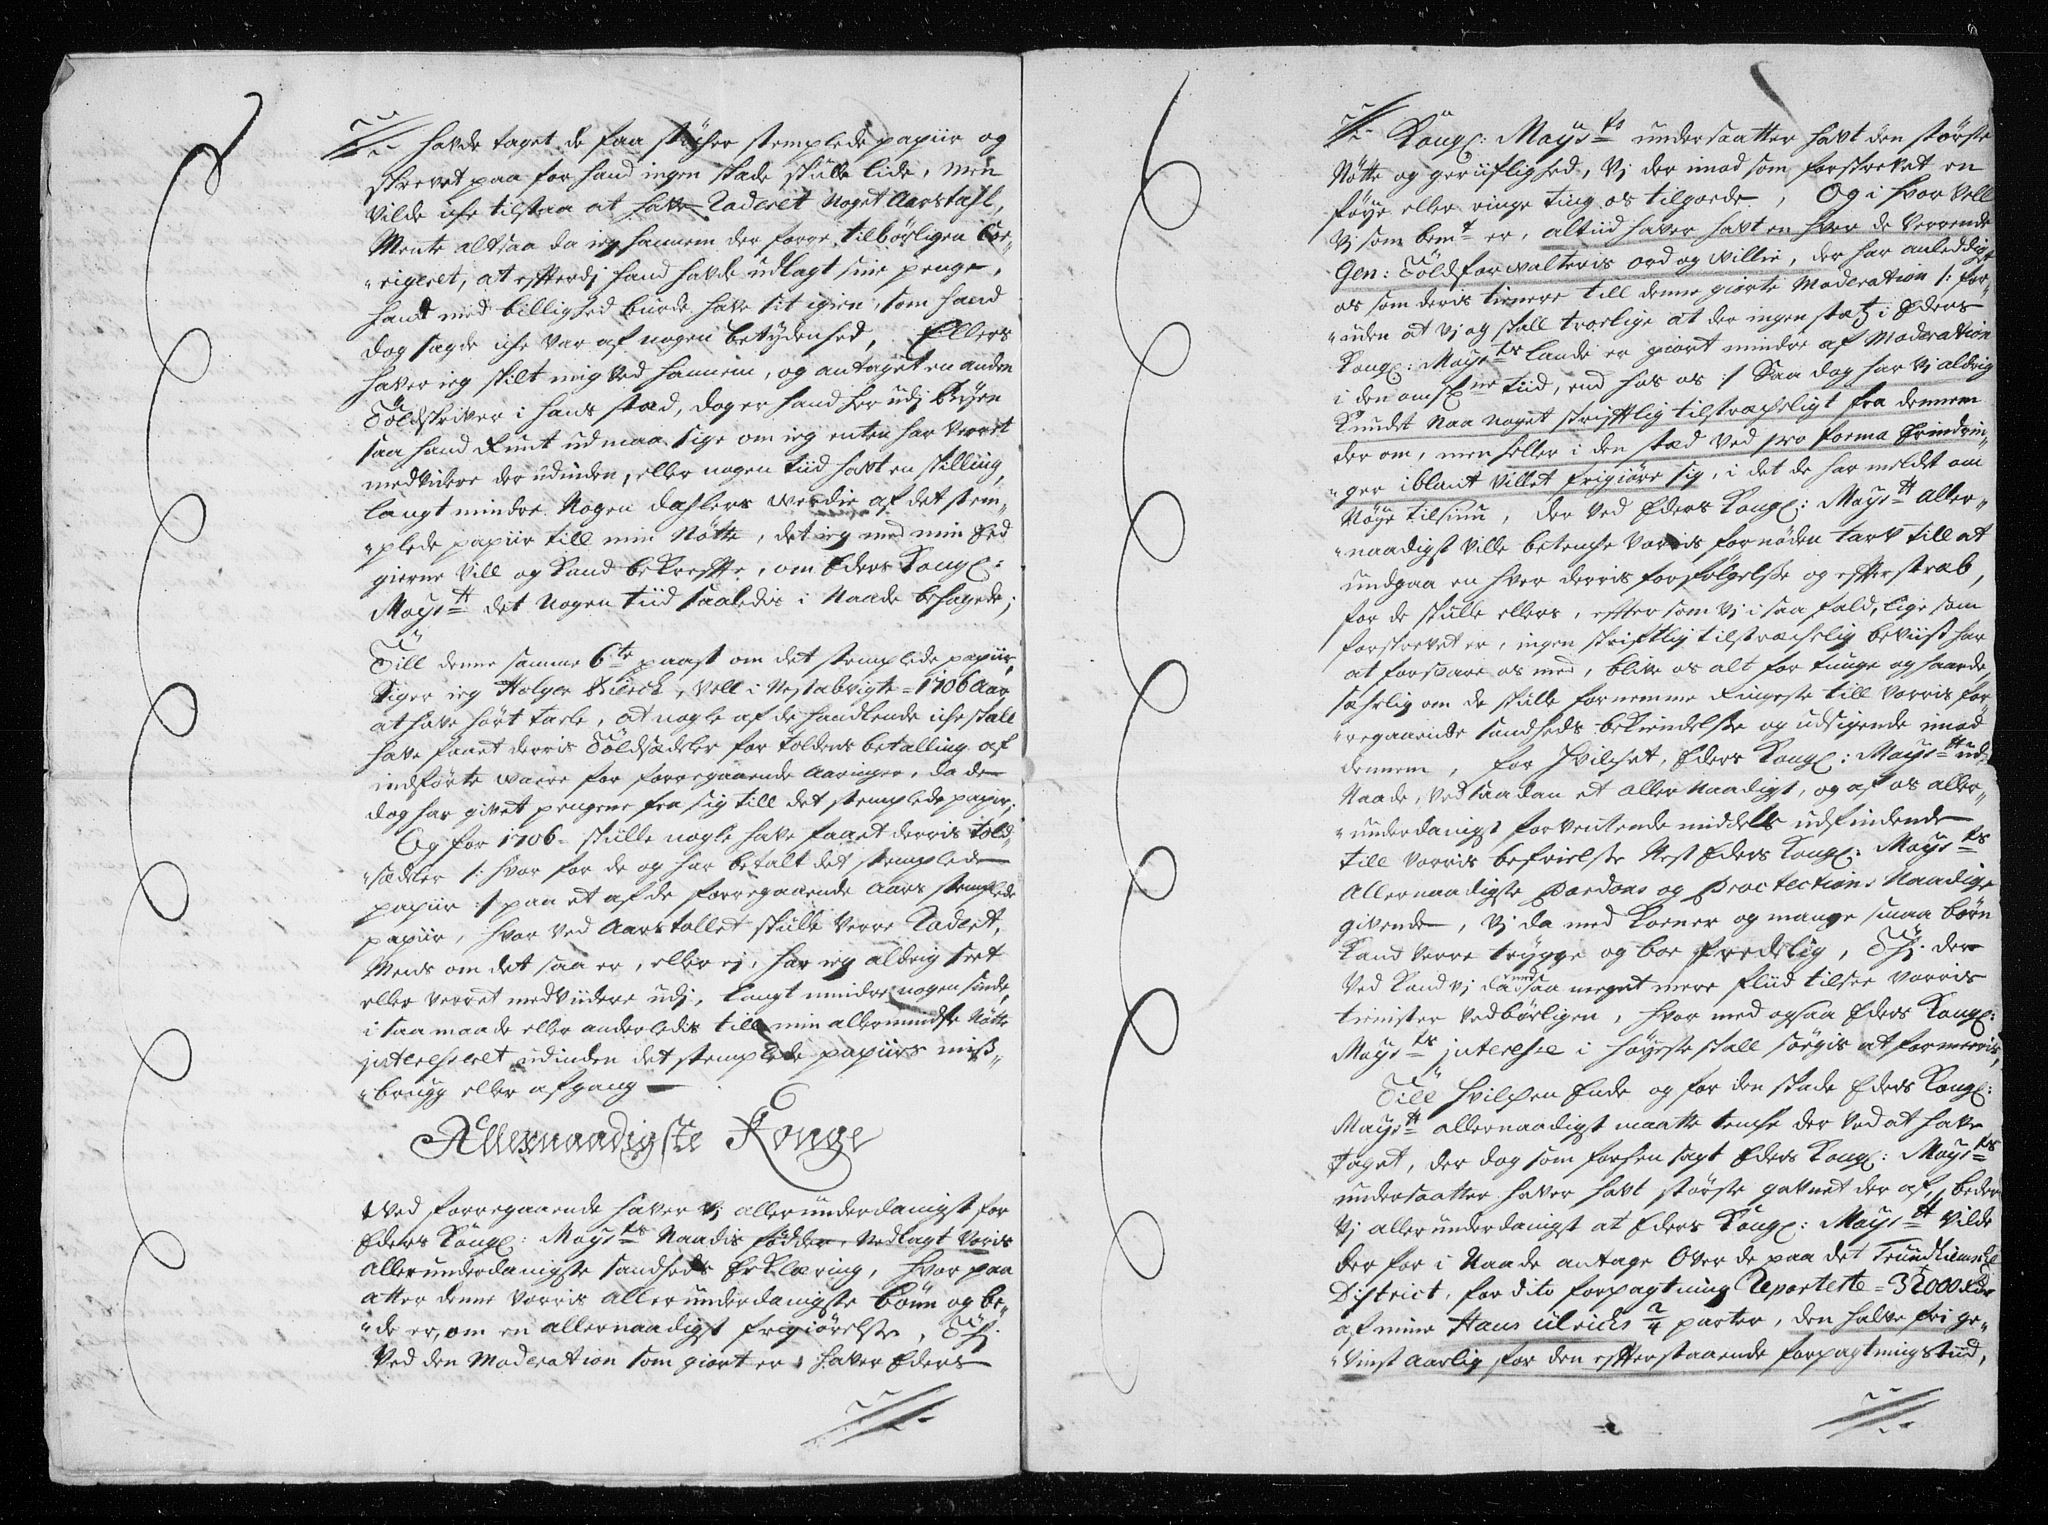 havde taget de faa stÿcher stemplede papiir og
skrevet paa for hand ingen skade skulle lide, men
vilde iche tilstaa at have Raderet noget Aarstahl,
Mente altsaa da ieg hannem der forre tilbørligen Cor-
rigeret, at efterdj hand havde udlagt sine penge,
hand med billighed burde have sit igien, som hand
dog sagde iche var af nogen betÿdenhed, Ellers
haver ieg skilt mig ved hannem, og antaget en anden
Toldskriver i hans stæd, dog er hand her udj Bÿen
saa hand Rundt ud maa sige om ieg enten har verret
medvidere der udinden, eller nogen tiid haft en skilling,
langt mindre Nogen dahlers werdie af det stem-
plede papiir till min Nøtte, det ieg med min Eed
gierne Vill og Kand beKrefte, om Eders Kongl:
Mayst: det Nogen tiid saaledis i Naade behagede;
Till denne samme 6te paast om det stemplede papiir,
Siger ieg Holger Sierck, vell i Nestabvigte 1706 Aar
at have hørt tarle, at nogle af de handlende iche skall
have faaet derris Toldsædeler for toldens betalling af
indførte waare for forregaaende Aaringer, da de
dog har givet pengene fra sig till det stemplede papiir;
Og for 1706 skulle nogle have faaet derris told-
sædeler /: hvor for de og har betalt det stemplede
papiir :/ paa et af de forregaaende Aars stemplede
papiir, hvor ved Aarstallet skulle verre Raderet,
Mens om det saa er, eller ej, har ieg aldrig seet
eller verret medviidere udj, langt mindre nogen sinde,
i saa maade eller anderledis till min allermindste Nøtte
jnteresseret udinden det stemplede papiirs miss-
brug eller afgang
Allernaadigste Konge
Ved forregaaende haver vj allerunderdanigst for
Eders Kongl: Mayts Naadis fødder, nedlagt voris
Allerunderdanigste sandheds Erklæring, hvor paa
atter denne vorris allerunderdanigste bøun og be-
de er, om en allernaadigst frigiørelse, Thj
Ved den Moderation som giort er, haver Eders
Kongl: Mayts undersaatter havt den største
Nøtte og geruflighed, Vj der imod som forskrevet en
føye eller ringe ting os tilgode, Og i hvor vell
Vj som bemt er, altiid haver havt en hver de verrende
Gen: Toldforwalteris ord og willie, der har anledd
os som deris tienere till denne giorte Moderation /: for-
uden at vj og skall troelige at der ingen stæt i Eders
Kongl: Mayts lande er giort mindre af Moderation
i den omskrne tiid, end hos os :/ Saa dog har vj aldrig
Kundet Naa noget skriftlig tilstræcheligt fra dennem
der om, men heller i den stæd ved pro forma Erindrin-
ger iblant villet frigiøre sig, i det de har meldt om
Nøye tilsiun, Der ved Eders Kongl: Mayst aller-
naadigst ville betenche vorris fornøden tarv till at
undgaa en hver derris forfølgelse og efterstræb,
for de skulle ellers, efter som vj i saa fald, lige som
forskrevet er, ingen skriftlig tilstræchelig beviis har
at forsvare os med, blive os alt for tunge og haarde,
særlig om de skulle fornemme Ringeste till vorris for-
regaaende sandheds bekiendelse og udsigende imod
dennem, for hvilchet, Eders Kongl: Mayst ud
Naade, ved saadan et allernaadigst, og af os aller-
underdanigst forventende middels udfindende
till vorris befrielse Nest Eders Kongl: Mayts
Allernaadigste Pardons og Proctections Naadige
givende, Vj da med Koener og mange smaa børn
Kand verre trÿgge og boe fredelig, Thj der
Ved Kand vj end saa meget mere fliid tilsee vorris
tienister vedbørligen, hvor med ogsaa Eders Kongl:
Mayts jnteresse i høyeste skall søgis at formerris,
Till hvilchen Ende og for den skade Eders Kongl:
Mayst allernaadigst maatte tenche der ved at have
taget, der dog som forhen sagt Eders Kongl: Mayts
undersaatter haver havt største gavnet der af, beder
Vj allerunderdanigst at Eders Kongl: Mayst Vilde
der for i Naade antage over de paa det Trundhiemske
District, for dito forpagtning Reparterte 32000 Rdr
af mine Hans Ulrichs 2/4 parter, den halve frj ge-
vinst aarlig for den efterstaaende forpagtnings tiid,